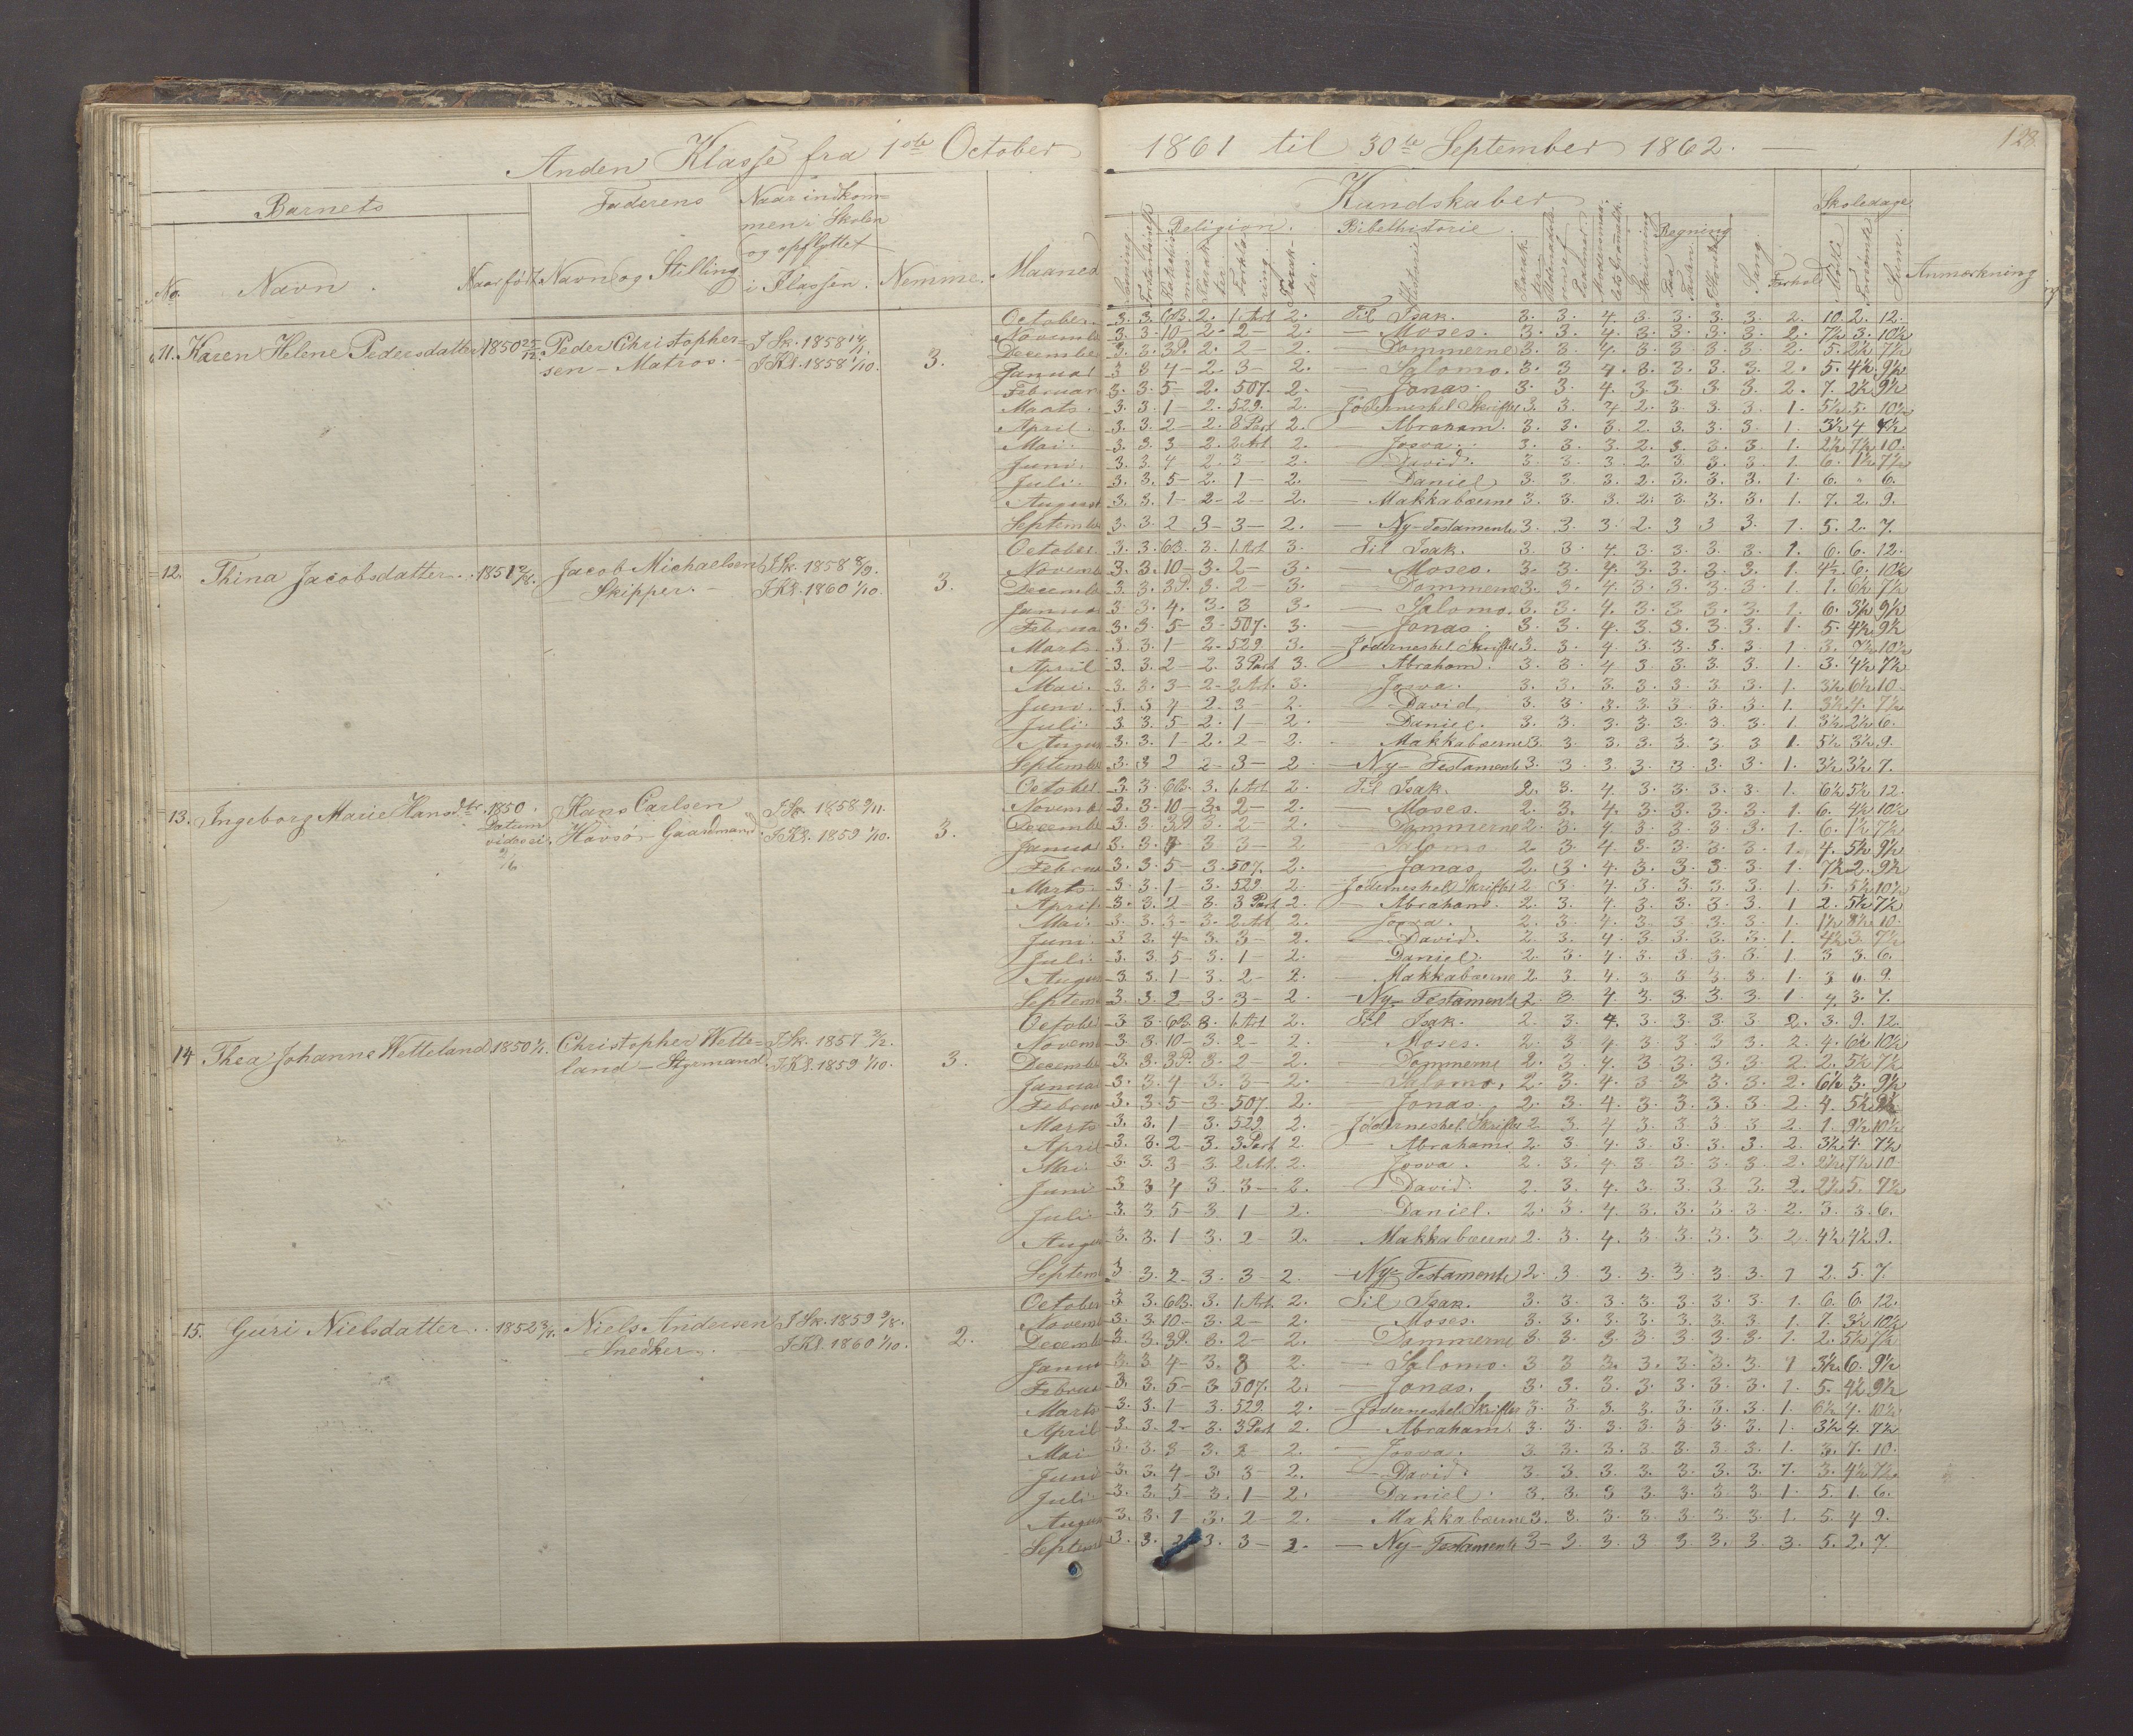 Anden Klasse fra 1ste October 1861 til 30te September 1862. —
128.
Barnets
Faderens
Naar indkom=
men i Skolen
og opflyttet
i Klassen.
Kundskaber
Skoledage
No. Navn. Naar född Navn og Stilling Nemme. Maaned
Religion. Bibelhistorie. Regning Sang Forhold Mödte Forsömte Sum. Anmærkning
11. Karen Helene Pedersdatter 1850 25/12. Peder Christopher= I Sk. 1858
sen – Matros. – I Kl. 1858 1/10. 3.
October. 3. 3. 6B. 2. 1 Art 2. Til Isak. 3. 3. 4. 3. 3. 3. 3. 2. 10. 2. 12.
Novemb 3. 3. 10 – 2 – 2 – 2. — Moses. 3. 3. 4. 3. 3. 3. 3. 2. 7½ 3. 10½
Decembe 3. 3. 3P. 2. 2 – 2. — Dommerne 3. 3. 4. 3. 3. 3. 3. 2. 5. 2½ 7½
Januar 3 3 4 – 2 3 – 2. — Salomo. 3. 3 4. 3. 3. 3. 3. 2. 5. 4½ 9½
Februar 3. 3. 5 – 2. 507. 2. — Jonas. 3. 3. 4. 3. 3. 3. 3. 2. 7. 2½ 9½
Marts. 3. 3. 1 – 2. 529. 2. — Jödernes hel. Skrifter 3. 3. 4 2. 3. 3. 3. 1. 5½ 5. 10½
April. 3. 3. 2 – 2. 3 Part 2. — Abraham. 3. 3. 3. 2. 3. 3. 3. 1. 3½ 4 7½
Mai. 3. 3. 3 – 2. 2 Art. 2. — Josva. 3. 3. 3. 2. 3. 3. 3. 1. 2½ 7½ 10.
Juni. 3. 3. 4 2. 3 – 2. — David. 3. 3. 3. 2. 3. 3. 3. 1. 6. 1½ 7½
Juli. 3. 3. 5 – 2. 1 – 2. — Daniel 3. 3. 3. 2. 3. 3. 3. 1. 6. " 6.
August 3. 3. 1 – 2 – 2 – 2. — Makkabæerne 3. 3. 3. 2. 3. 3. 3. 1. 7. 2. 9.
Septembe 3. 3. 2 3 – 3 – 2. — Ny-Testamente 3. 3. 3. 2. 3 3 3. 1. 5. 2. 7.
12. Thina Jacobsdatter.. 1851 Jacob Michaelsen I Sk. 1858 8/9.
Skipper. – I Kl. 1860 1/10. 3.
October. 3. 3. 6B. 3. 1 Art 3. Til Isak. 3. 3. 4. 3. 3. 3. 3. 1. 6. 6. 12.
Novemb 3. 3. 10 – 3. 2 – 3. — Moses. 3. 3. 4. 3. 3. 3. 3. 1. 4½ 6. 10½
Decembe 3. 3. 3P. 3. 2 – 3. — Dommerne 3. 3. 4. 3. 3. 3. 3. 1. 1. 6½ 7½
Januar 3 3. 4. 3. 3 3. — Salomo. 3. 3. 4. 3. 3. 3. 3. 1. 6. 3½ 9½
Februa 3. 3. 5 – 3 – 507. 3. — Jonas. 3. 3. 4. 3. 3. 3. 3. 1. 5. 4½ 9½
Marts. 3 3. 1 – 2 – 529. 3. — Jödernes hel. Skrifter 3. 3. 4. 3. 3. 3. 3. 1. 3. 7½ 10½
April 3. 3. 2 – 2. 3 Part 3. — Abraham. 3. 3. 4 3. 3. 3. 3. 1. 3. 4½ 7½
Mai. 3. 3. 3 – 2 – 2 Art. 3. — Josva. 3. 3. 3. 3. 3. 3. 3. 1. 3½ 6½ 10
Juni. 3. 3 4 – 2. 3 – 2. — David 3. 3. 3. 3. 3. 3. 3. 1. 3½ 4. 7½
Juli. 3. 3. 5 – 2. 1 – 2. — Daniel. 3. 3. 3. 3. 3. 3. 3. 1. 3½ 2½ 6.
Augus 3. 3. 1 – 2. 2 – 2. — Makkabæerne 3. 3. 3. 3. 3. 3. 3 1. 5½ 3½ 9.
Septembe 3. 3 2 2 – 3 – 2 — Ny-Testamente 3. 3. 3. 3. 3. 3. 3. 1. 3½ 3½ 7.
13. Ingeborg Marie Hansdtr. 1850. Hans Carlsen I Sk. 1858 9/11.
Datum Hovsö – Gaardmand. I Kl. 1859 1/10. 3.
vides ei.
October 3. 3. 6B. 3. 1 Art 2. Til Isak. 2. 3. 4. 3. 3. 3. 3. 1. 6½ 5½ 12.
Novemb 3. 3. 10 – 3. 2 – 2. — Moses. 2. 3. 4. 3. 3. 3. 3. 1. 6. 4½ 10½
Decembe 3. 3. 3P 3. 2 – 2. — Dommerne 2. 3. 4. 3. 3. 3. 3. 1. 6. 1½ 7½
Januar 3. 3. 4 3 3 – 2 — Salomo 2. 3. 4. 3. 3. 3. 3. 1. 4. 5½ 9½
Februa 3. 3. 5 – 3. 507. 2. — Jonas 2. 3. 4. 3. 3. 3. 3. 1. 7½ 2. 9½
Marts. 3. 3. 1 – 3. 529 2. — Jödernes hel. Skrifter 2. 3. 4. 3. 3. 3. 3. 1. 5. 5½ 10½
April. 3. 3. 2 – 3. 3 Part 2. — Abraham. 2. 3. 4. 3. 3. 3. 3. 1 2. 5½ 7½
Mai. 3. 3. 3 – 3. 2 Art 2. — Josva. 2. 3. 4. 3. 3. 3. 3. 1. 1½ 8½ 10.
Juni. 3 3. 4 – 3. 3 – 2. — David. 2. 3. 4. 3. 3. 3. 3. 1. 4½ 3. 7½
Juli. 3. 3. 5 – 3. 1 – 2. — Daniel. 2. 3. 4. 3. 3. 3. 3. 1. 3. 3. 6.
Augus 3. 3. 1 – 3. 2 – 2. — Makkabæerne 2. 3. 4. 3. 3. 3. 3. 1. 3 6. 9.
Septem 3. 3. 2 – 3. 3 – 2. — Ny-Testamente 2. 3. 4. 3. 3. 3. 3. 1 4. 3. 7.
14. Thea Johanne Wetteland 1850 Christopher Wette= I Sk. 1857
land – Styrmand. I Kl. 1859 1/10. 3.
October 3. 3. 6B. 3. 1 Art 2. Til Isak. 2. 3. 4. 3. 3. 3. 3 2. 3. 9. 12.
Novemb 3. 3. 10 – 3. 2 – 2. — Moses. 2. 3. 4. 3. 3. 3. 3. 2. 4. 6½ 10½
Decembe 3. 3. 3P. 3. 2 – 2. — Dommerne 2. 3. 4. 3. 3. 3. 3. 2. 2. 5½ 7½
Januar 3. 3. 4 – 3. 3 – 2. — Salomo. 2. 3. 4. 3 3. 3. 3. 2. 6½ 3. 9½
Februa 3. 3. 5 – 3. 507. 2. — Jonas. 2. 3. 4. 3. 3. 3. 3. 2. 4. 5½ 9½
Marts 3. 3. 1 – 3. 529. 2. — Jödernes hel. Skrifter 2. 3 4 3. 3. 3. 3. 2. 1. 9½ 10½
April 3. 3. 2 – 3. 3 Part 2. — Abraham 2. 3. 4. 3. 3. 3. 3. 2. 3½ 4. 7½
Mai. 3. 3. 3 – 3. 2 Art. 2. — Josva. 2. 3. 4. 3. 3. 3. 3. 2. 2½ 7½ 10
Juni 3 3 4 3. 3 – 2. — David. 2. 3. 4. 3. 3. 3. 3. 2. 2½ 5. 7½
Juli 3. 3. 5 – 3. 1 – 2. — Daniel. 2. 3. 4. 3. 3. 3. 3. 2. 3. 3. 6.
Augus 3. 3. 1 – 3. 2 – 2. — Makkabæerne 2. 3. 4. 3. 3. 3. 3 2. 4½ 4½ 9.
Septem 3. 3. 2 – 3. 3 – 2. — Ny-Testamente 2. 3 3. 3. 3. 3. 3. 1 2. 5. 7.
15. Guri Nielsdatter.. 1852 Niels Andersen I Sk. 1859 9/8.
Snedker. – I Kl. 1860 1/10. 2.
October 3. 3. 6B. 3. 1 Art. 2. Til Isak. 3. 3. 3. 3. 3. 3. 3. 1. 6. 6. 12.
Novemb 3. 3. 10 – 3. 2 – 2. — Moses. 3. 3. 3. 3. 3. 3. 3. 1. 7. 3½ 10½
Decembe 3. 3. 3P. 3. 2 – 2. — Dommerne 3. 3. 3. 3 3. 3. 3. 1. 2. 5½ 7½
Januar 3. 3. 4 – 3. 3 2. — Salomo. 3 3 3. 3. 3. 3. 3. 1 3½ 6. 9½
Februa 3. 3. 5 – 3. 507. 2. — Jonas. 3. 3. 3. 3. 3. 3. 3. 1. 5. 4½ 9½
Marts 3. 3. 1 – 3. 529. 2. — Jödernes hel. Skrifter 3. 3. 3. 3. 3. 3. 3. 1. 6½ 4. 10½
April 3. 3. 2 – 3. 3 Part 2. — Abraham. 3. 3. 3. 3. 3. 3. 3. 1. 3½ 4. 7½
Mai 3. 3. 3 3. 2 – 2. — Josva. 3. 3. 3. 3. 3. 3. 3. 1. 3. 7. 10.
Juni 3. 3. 4 – 3. 3 – 2. — David. 3. 3. 3. 3. 3. 3. 3. 1. 3. 4½ 7½
Juli 3. 3. 5 – 3. 1 – 2. — Daniel. 3. 3. 3 3. 3. 3. 3. 1. 5. 1. 6.
Augus 3. 3. 1 – 3. 2 – 2. — Makkabæerne 3. 3. 3. 3. 3. 3. 3. 1. 5. 4 9.
Septemb 3. 3. 2 3. 3 – 2. — Ny-Testamente 3 – 3. 3. 3 3. 3. 3. 3. 5. 2. 7.